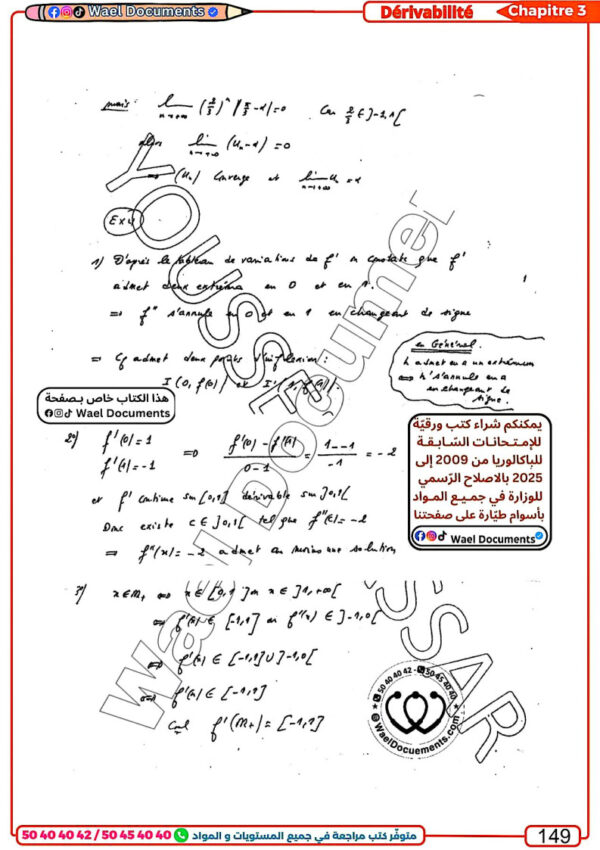 Wael Documents
Dérivabilité
Chapitre 3
mais: lim n→+∞ (2/3)^n |π/3 - α| = 0 Car 2/3 ∈ ]-1,1[
alors lim n→+∞ (Un - α) = 0
⇒ (Un) converge et lim n→+∞ Un = α
Ex 4
1) D'après le tableau de variations de f' on constate que f'
admet deux extréma en 0 et en 1.
⇒ f'' s'annule en 0 et en 1 en changeant de signe
⇒ Cf admet deux points d'inflexion:
I(0, f(0)) et I'(1, f(1)).
en Général.
h admet en a un extrémum
⇔ h' s'annule en a
en changeant de
signe.
هذا الكتاب خاص بـصفحة
Wael Documents
2°) f'(0) = 1
f'(1) = -1
⇒ (f'(0) - f'(1))/(0 - 1) = (1 - -1)/-1 = -2
et f' continue sur [0,1] dérivable sur ]0,1[
Donc existe c ∈ ]0,1[ tel que f''(c) = -2
⇒ f''(x) = -2 admet au moins une solution
يمكنكم شراء كتب ورقيّة
للإمتـحانات السّابـقـة
للباكالوريا من 2009 إلى
2025 بالاصلاح الرّسمي
للوزارة في جميـع المـواد
بأسوام طيّارة على صفحتنا
Wael Documents
3°) x ∈ ℝ+ ⇔ x ∈ [0,1] ou x ∈ ]1,+∞[
⇔ f'(x) ∈ [-1,1] ou f'(x) ∈ ]-1,0[
⇔ f'(x) ∈ [-1,1] ∪ ]-1,0[
⇔ f'(x) ∈ [-1,1]
Cal f'(ℝ+) = [-1,1]
YOUSSEF
Wael Documents
SSAR
50 40 40 42 - 50 45 40 40
WaelDocuements.com
50 40 40 42 / 50 45 40 40 متوفّر كتب مراجعة في جميع المستويات و المواد
149